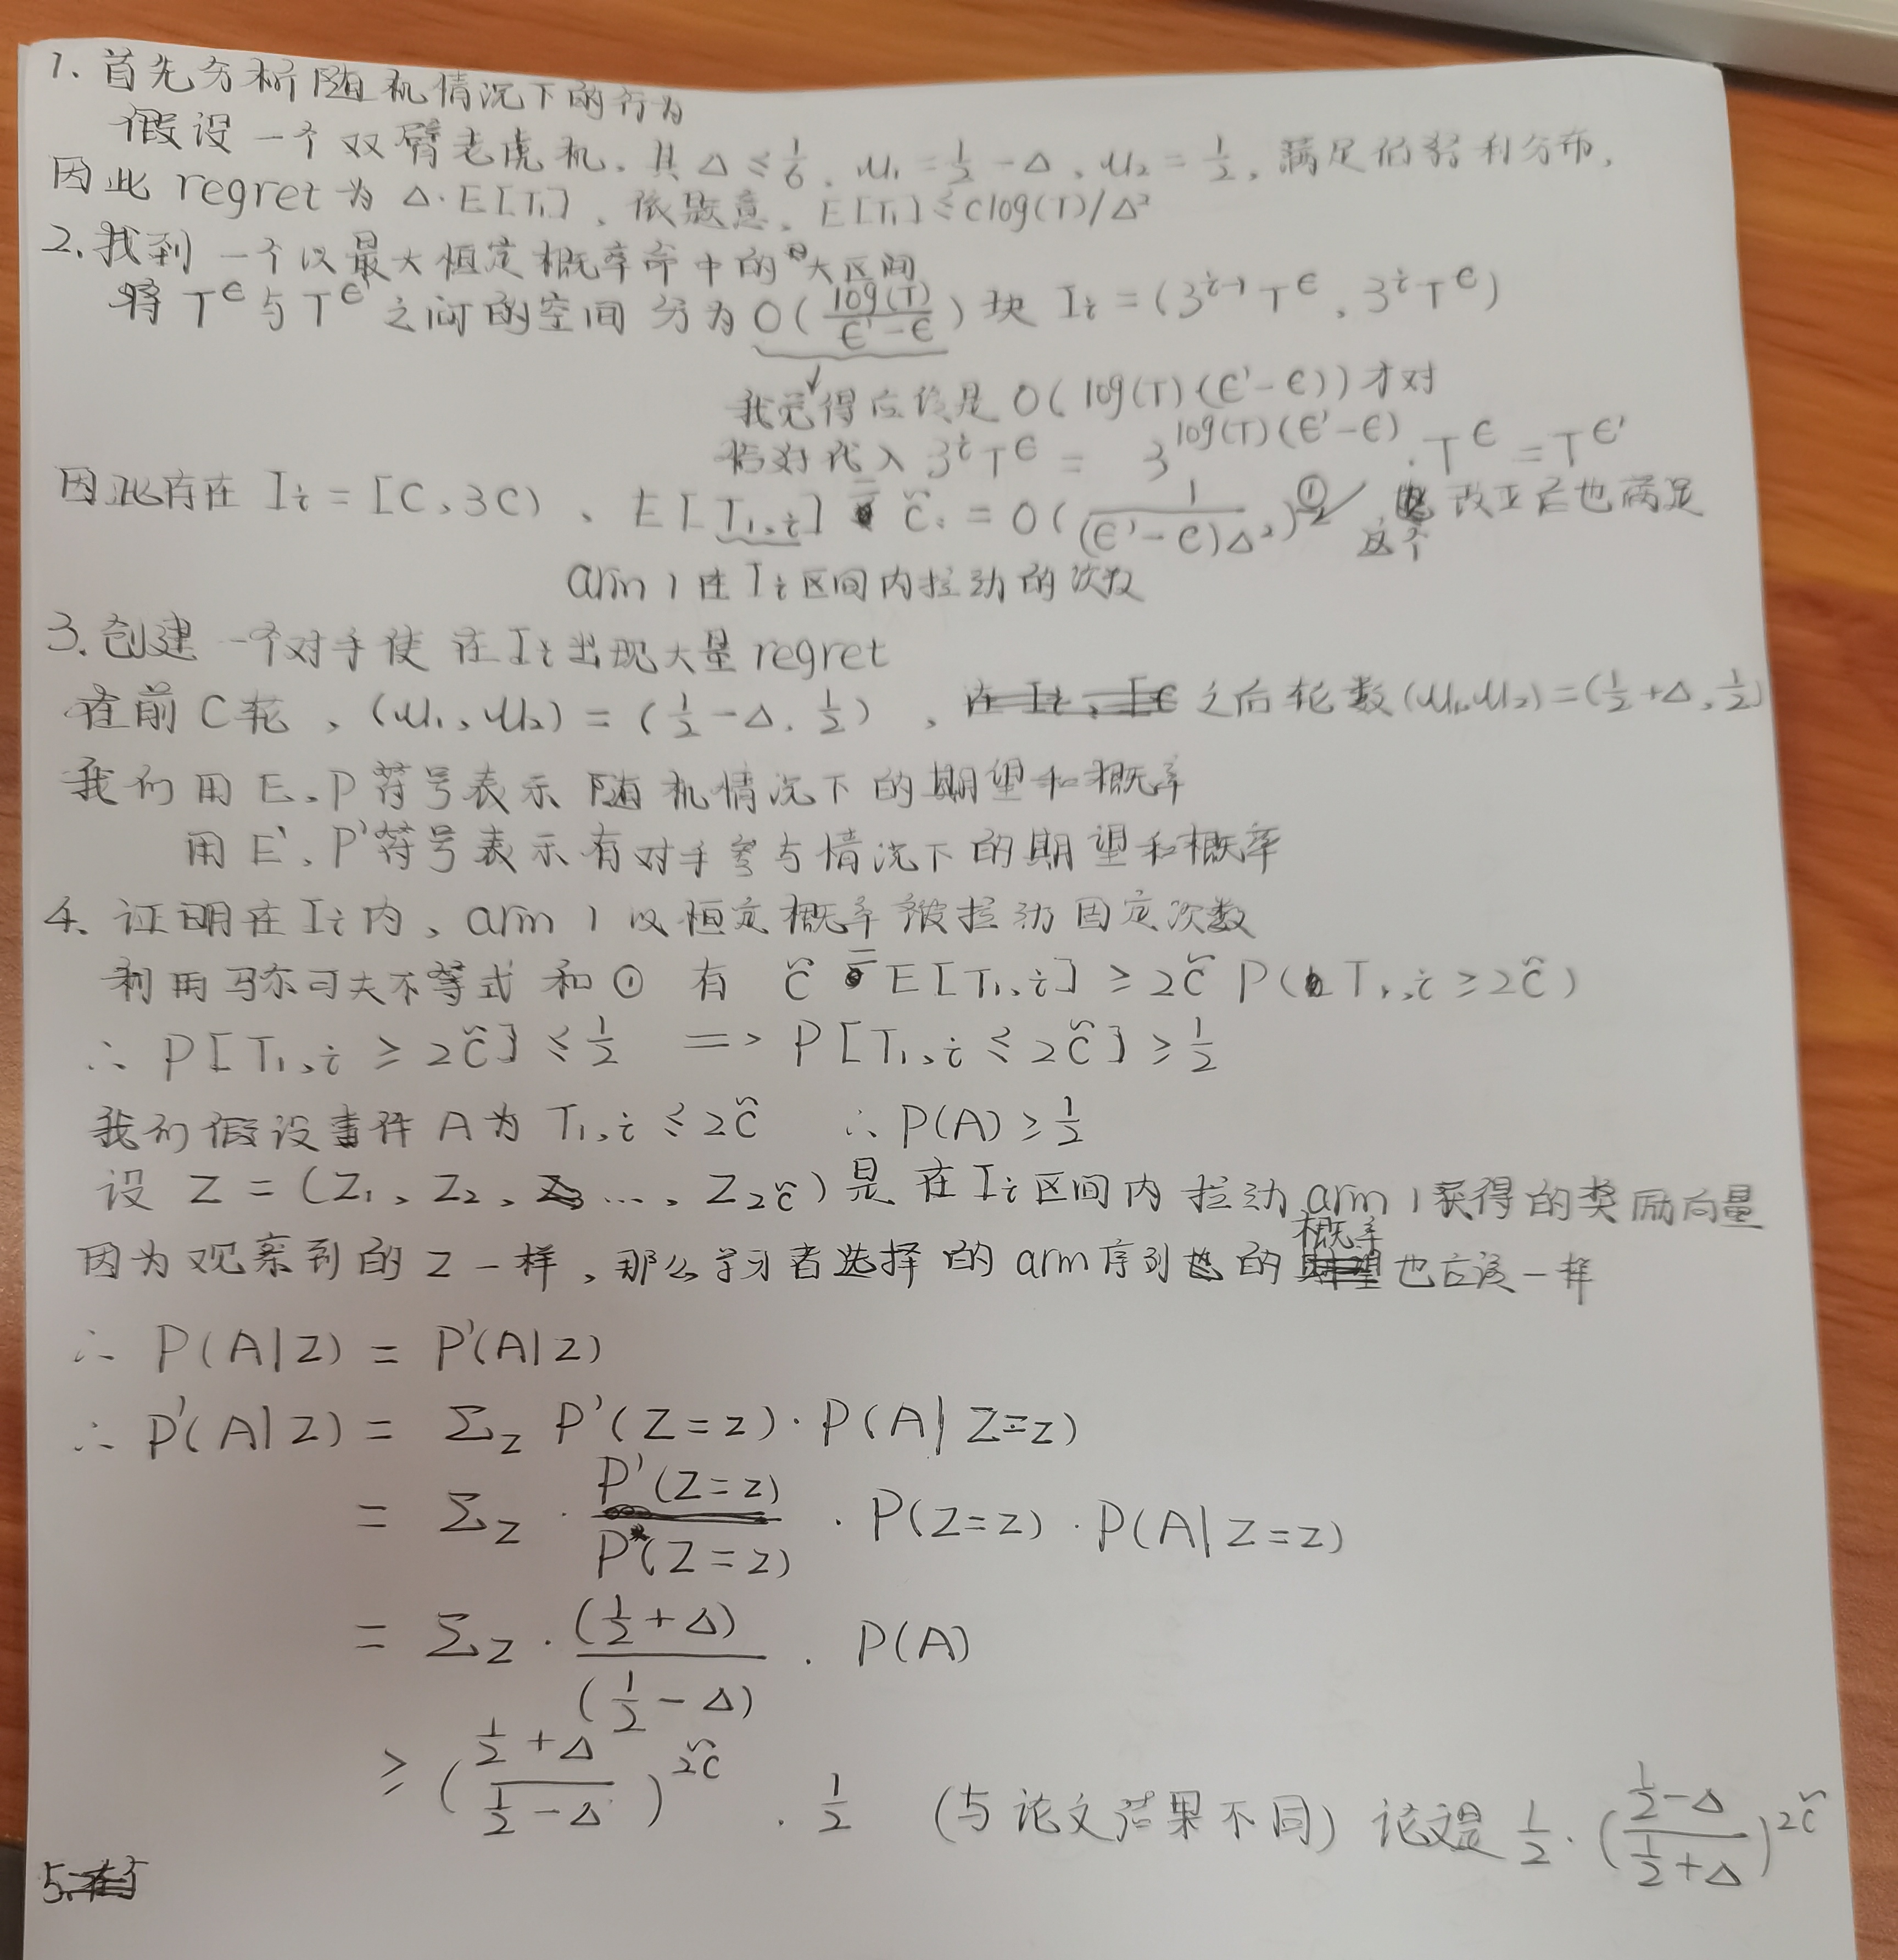 1. 首先分析随机情况下的行为
假设一个双臂老虎机. 其 Δ ≤ 1/6, u₁ = 1/2 - Δ, u₂ = 1/2, 满足伯努利分布,
因此 regret 为 Δ·E[T₁], 依题意, E[T₁] ≤ c log(T)/Δ²
2. 找到一个以最大恒定概率命中的大区间
将 T^ϵ 与 T^ϵ' 之间的空间分为 O(log(T)/(ϵ'-ϵ)) 块 Iᵢ = (3^(i-1) T^ϵ, 3^i T^ϵ)
我觉得应该是 O(log(T)(ϵ'-ϵ)) 才对
恰好代入 3^i T^ϵ = 3^(log(T)(ϵ'-ϵ)) · T^ϵ = T^ϵ'
因此存在 Iᵢ = [C, 3C), E[T₁,ᵢ] = c̃ = O(1/((ϵ'-ϵ)Δ²)) ① 改正后也满足
这个
arm 1 在 Iᵢ 区间内拉动的次数
3. 创建一个对手使在 Iᵢ 出现大量 regret
在前 C 轮, (u₁, u₂) = (1/2 - Δ, 1/2), 之后轮数 (u₁, u₂) = (1/2 + Δ, 1/2)
我们用 E、P 符号表示随机情况下的期望和概率
用 E'、P' 符号表示有对手参与情况下的期望和概率
4. 证明在 Iᵢ 内, arm 1 以恒定概率被拉动固定次数
利用马尔可夫不等式和 ① 有 c̃ = E[T₁,ᵢ] ≥ 2c̃ P(T₁,ᵢ ≥ 2c̃)
∴ P[T₁,ᵢ ≥ 2c̃] ≤ 1/2 => P[T₁,ᵢ ≤ 2c̃] ≥ 1/2
我们假设事件 A 为 T₁,ᵢ ≤ 2c̃ ∴ P(A) ≥ 1/2
设 Z = (Z₁, Z₂, ..., Z_2c̃) 是在 Iᵢ 区间内拉动 arm 1 获得的奖励向量
因为观察到的 Z 一样, 那么学习者选择的 arm 序列的概率也应该一样
∴ P(A|Z) = P'(A|Z)
∴ P'(A|Z) = Σz P'(Z=z) · P(A|Z=z)
= Σz · P'(Z=z)/P(Z=z) · P(Z=z) · P(A|Z=z)
= Σz · (1/2 + Δ)/(1/2 - Δ) · P(A)
≥ ((1/2 + Δ)/(1/2 - Δ))^2c̃ · 1/2 (与论文结果不同) 论文是 1/2 · ((1/2 - Δ)/(1/2 + Δ))^2c̃
5.